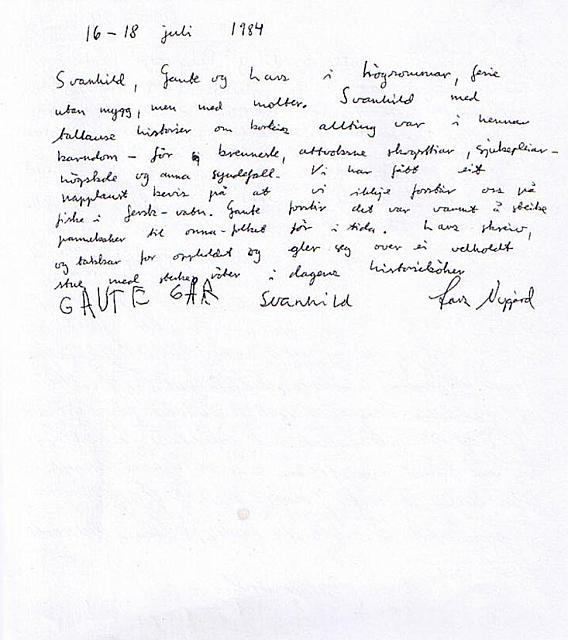 16-18 juli 1984
Svanhild, Gaute og Lars i högsommar, ferie
utan mygg, men med molter. Svanhild med
tallause historier om korleis allting var i hennar
barndom - før brennesle, attvaksne, sjukepleiar-
högskole og anna syndefall. Vi har fått eit
napplaust bevis på at vi ikkje forstår oss på
fiske i fersk-vatn. Gaute forstår det var vanut å steike
pannekaker til onna-folket før i tida. Lars skreiv,
og takkar for oppholdet og gler seg over ei velholdt
stue med sterke røter i dagens historiebøker
GAUTE GAR Svanhild Lars Nygård